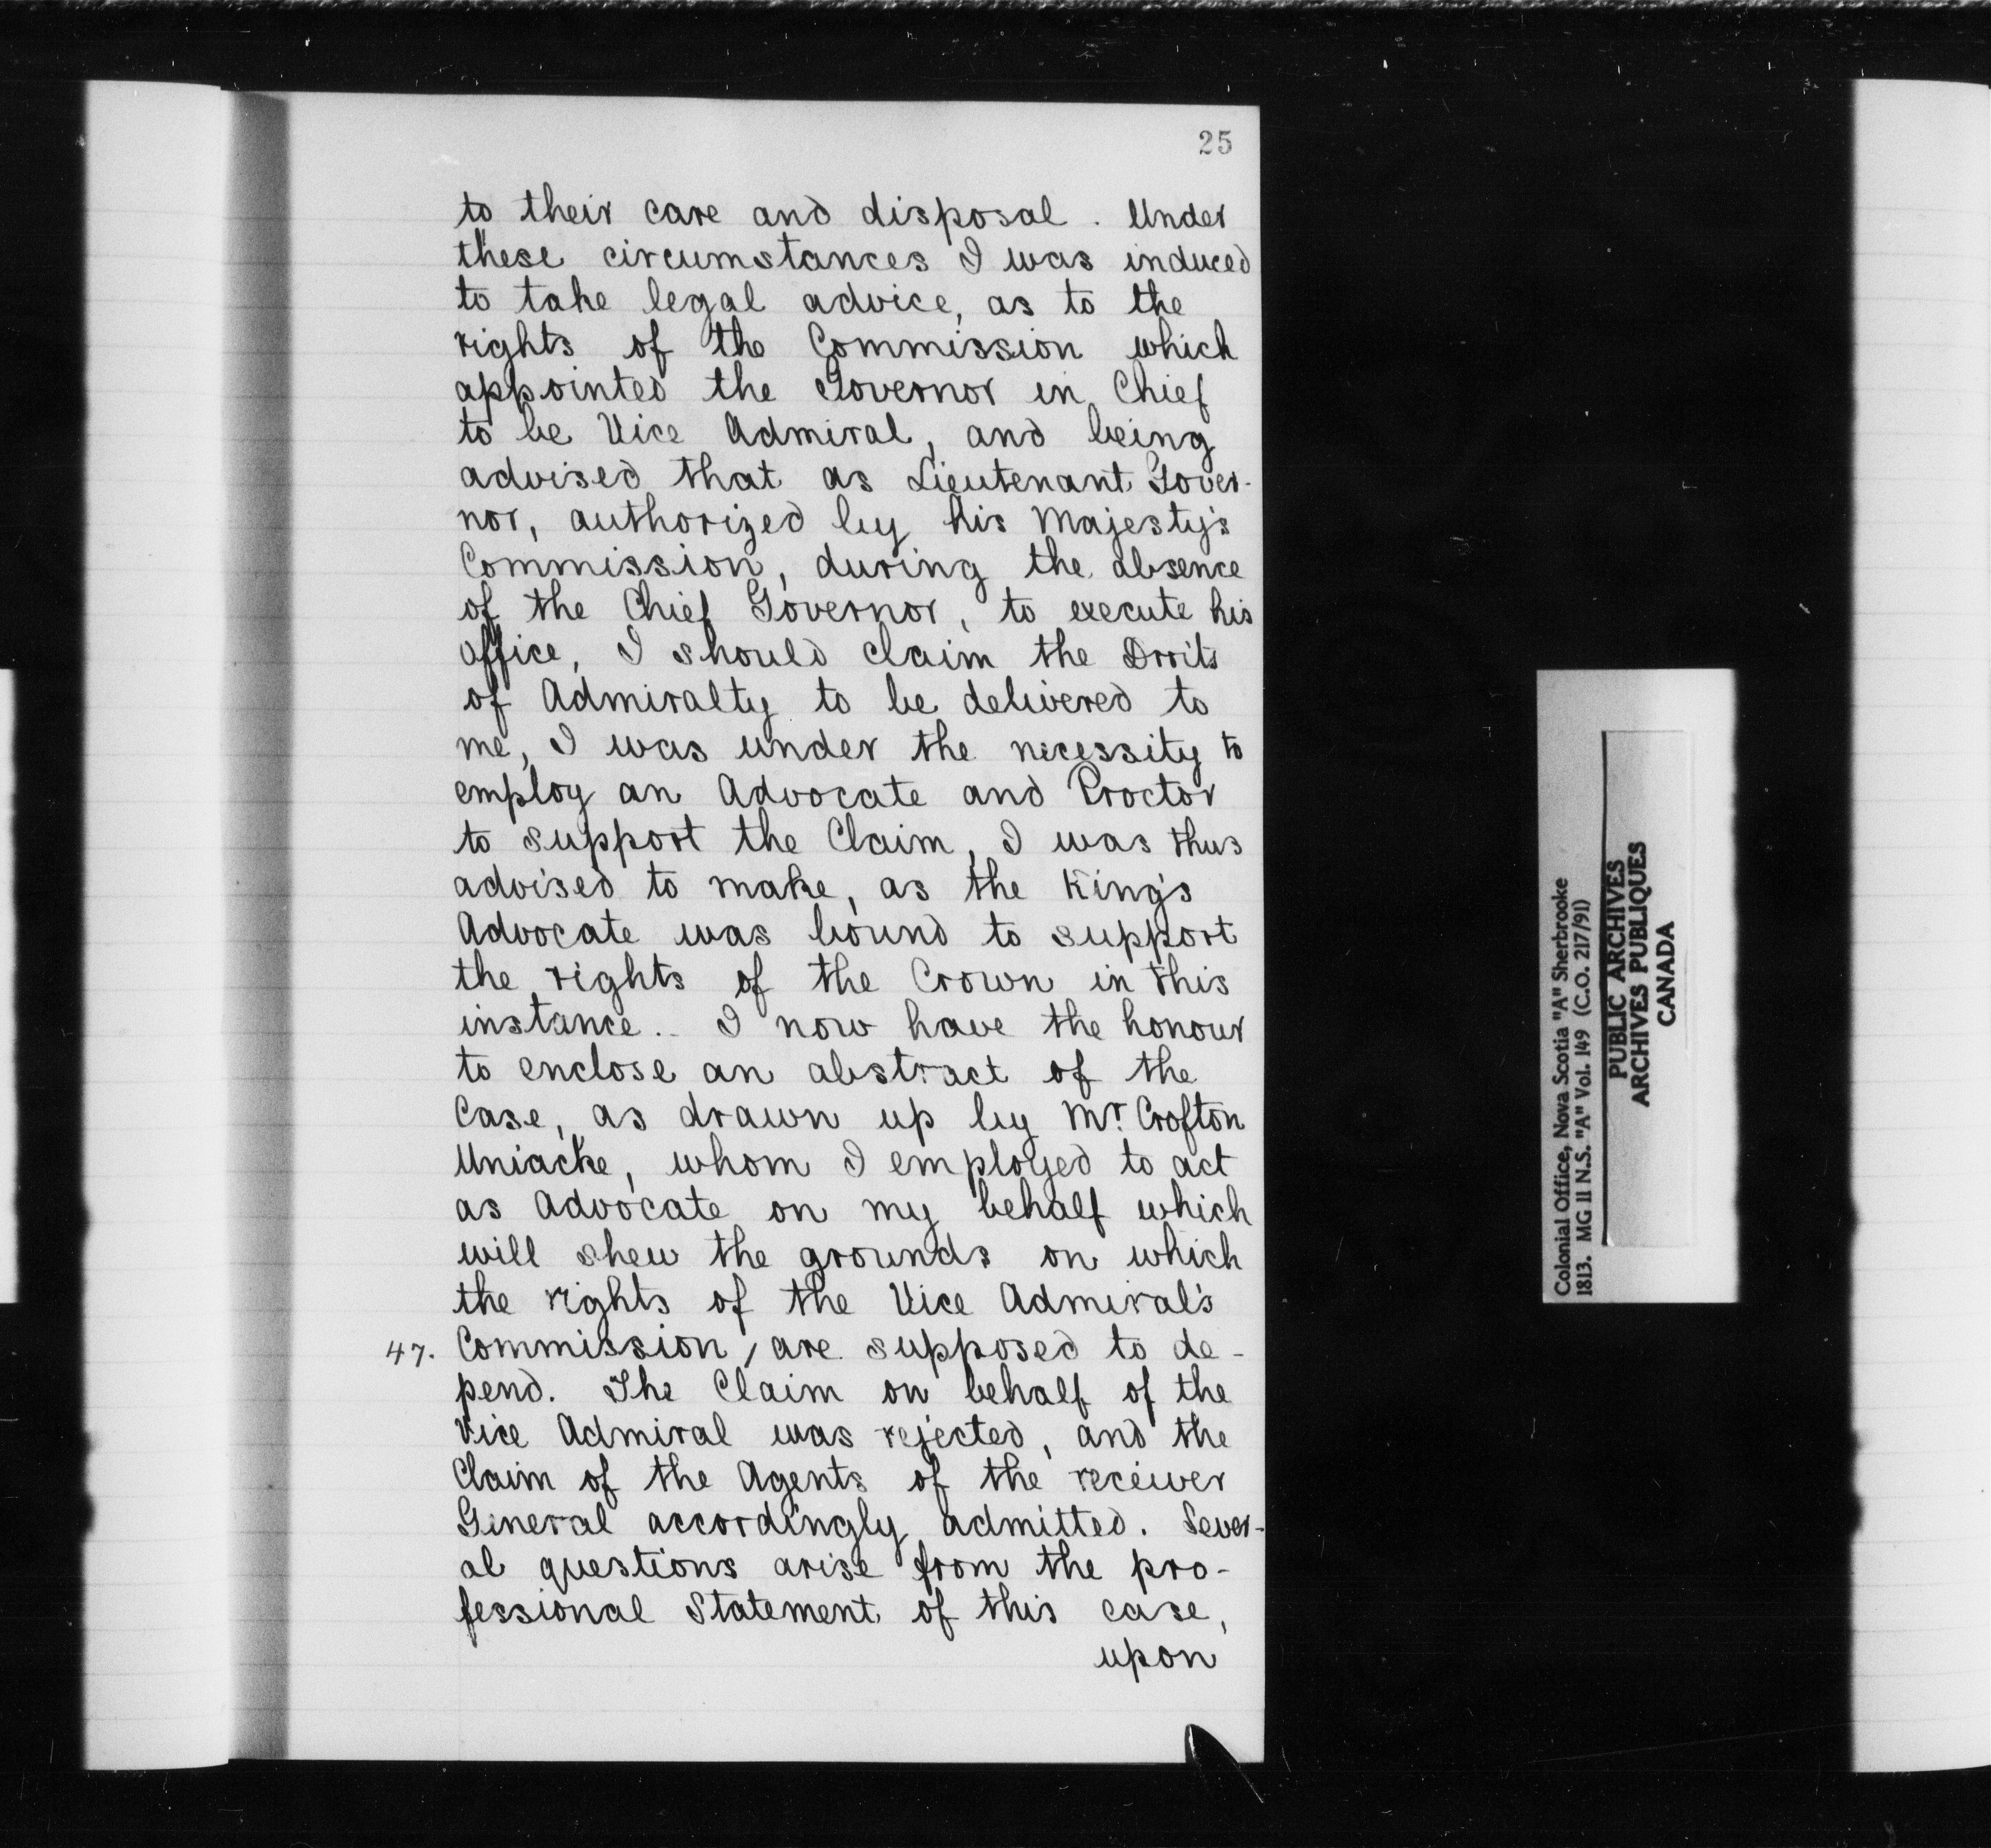 25
to their care and disposal. Under
these circumstances I was induced
to take legal advice, as to the
rights of the Commission which
appointed the Governor in Chief
to be Vice Admiral, and being
advised that as Lieutenant Gover-
nor, authorized by his Majesty's
Commission, during the absence
of the Chief Governor, to execute his
office, I should claim the Droits
of Admiralty to be delivered to
me, I was under the necessity to
employ an Advocate and Proctor
to support the Claim, I was thus
advised to make, as the King's
Advocate was bound to support
the rights of the Crown in this
instance.. I now have the honour
to enclose an abstract of the
Case, as drawn up by Mr. Crofton
Uniacke, whom I employed to act
as Advocate on my behalf which
will shew the grounds on which
the rights of the Vice Admiral's
47. Commission / are supposed to de-
pend. The Claim on behalf of the
Vice Admiral was rejected, and the
Claim of the Agents of the receiver
General accordingly admitted. Sever-
al questions arise from the pro-
fessional Statement of this case,
upon
Colonial Office, Nova Scotia "A" Sherbrooke
1813. MG 11 N.S. "A" Vol. 149 (C.O. 217/91)
PUBLIC ARCHIVES
ARCHIVES PUBLIQUES
CANADA